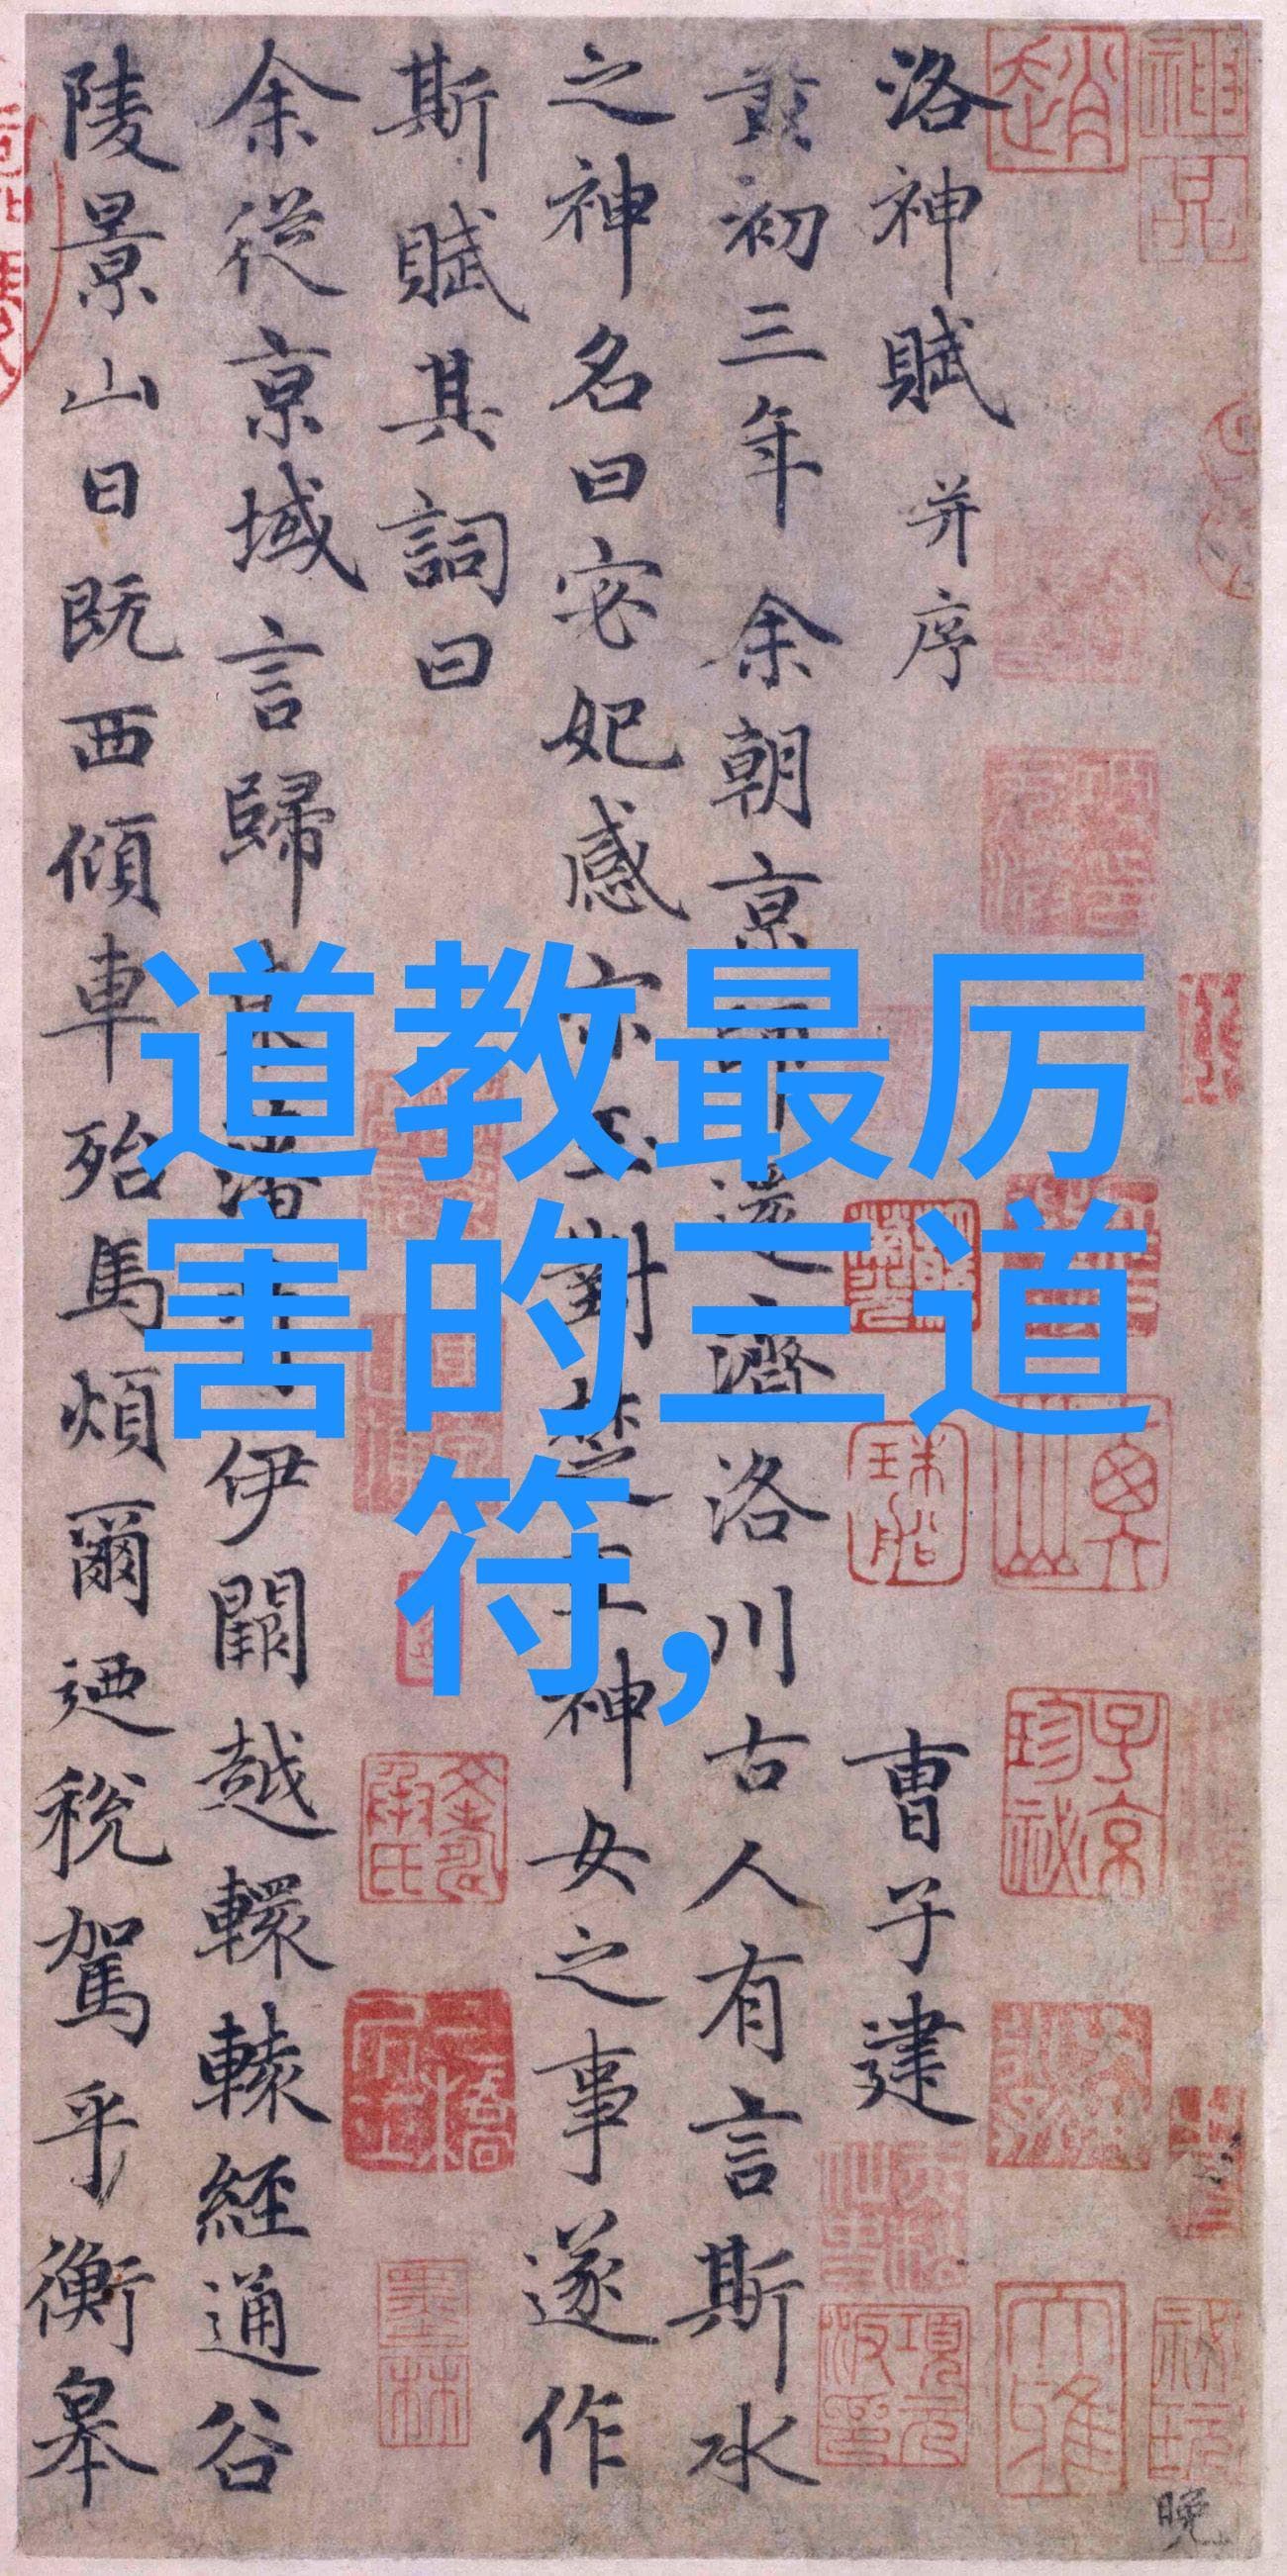 洛神賦 并序 曹子建
黄初三年余朝京師還濟洛川古人有言斯水
之神名曰宓妃感宋玉對楚王神女之事遂作
斯賦其詞曰
余從京域言歸東藩背伊闕越轘轅經通谷
陵景山日既西傾車殆馬煩爾迺稅駕乎衡皋
道教最厉
害的三道
符,
趙
子京
珍祕
項元
汴印
墨
林
晚